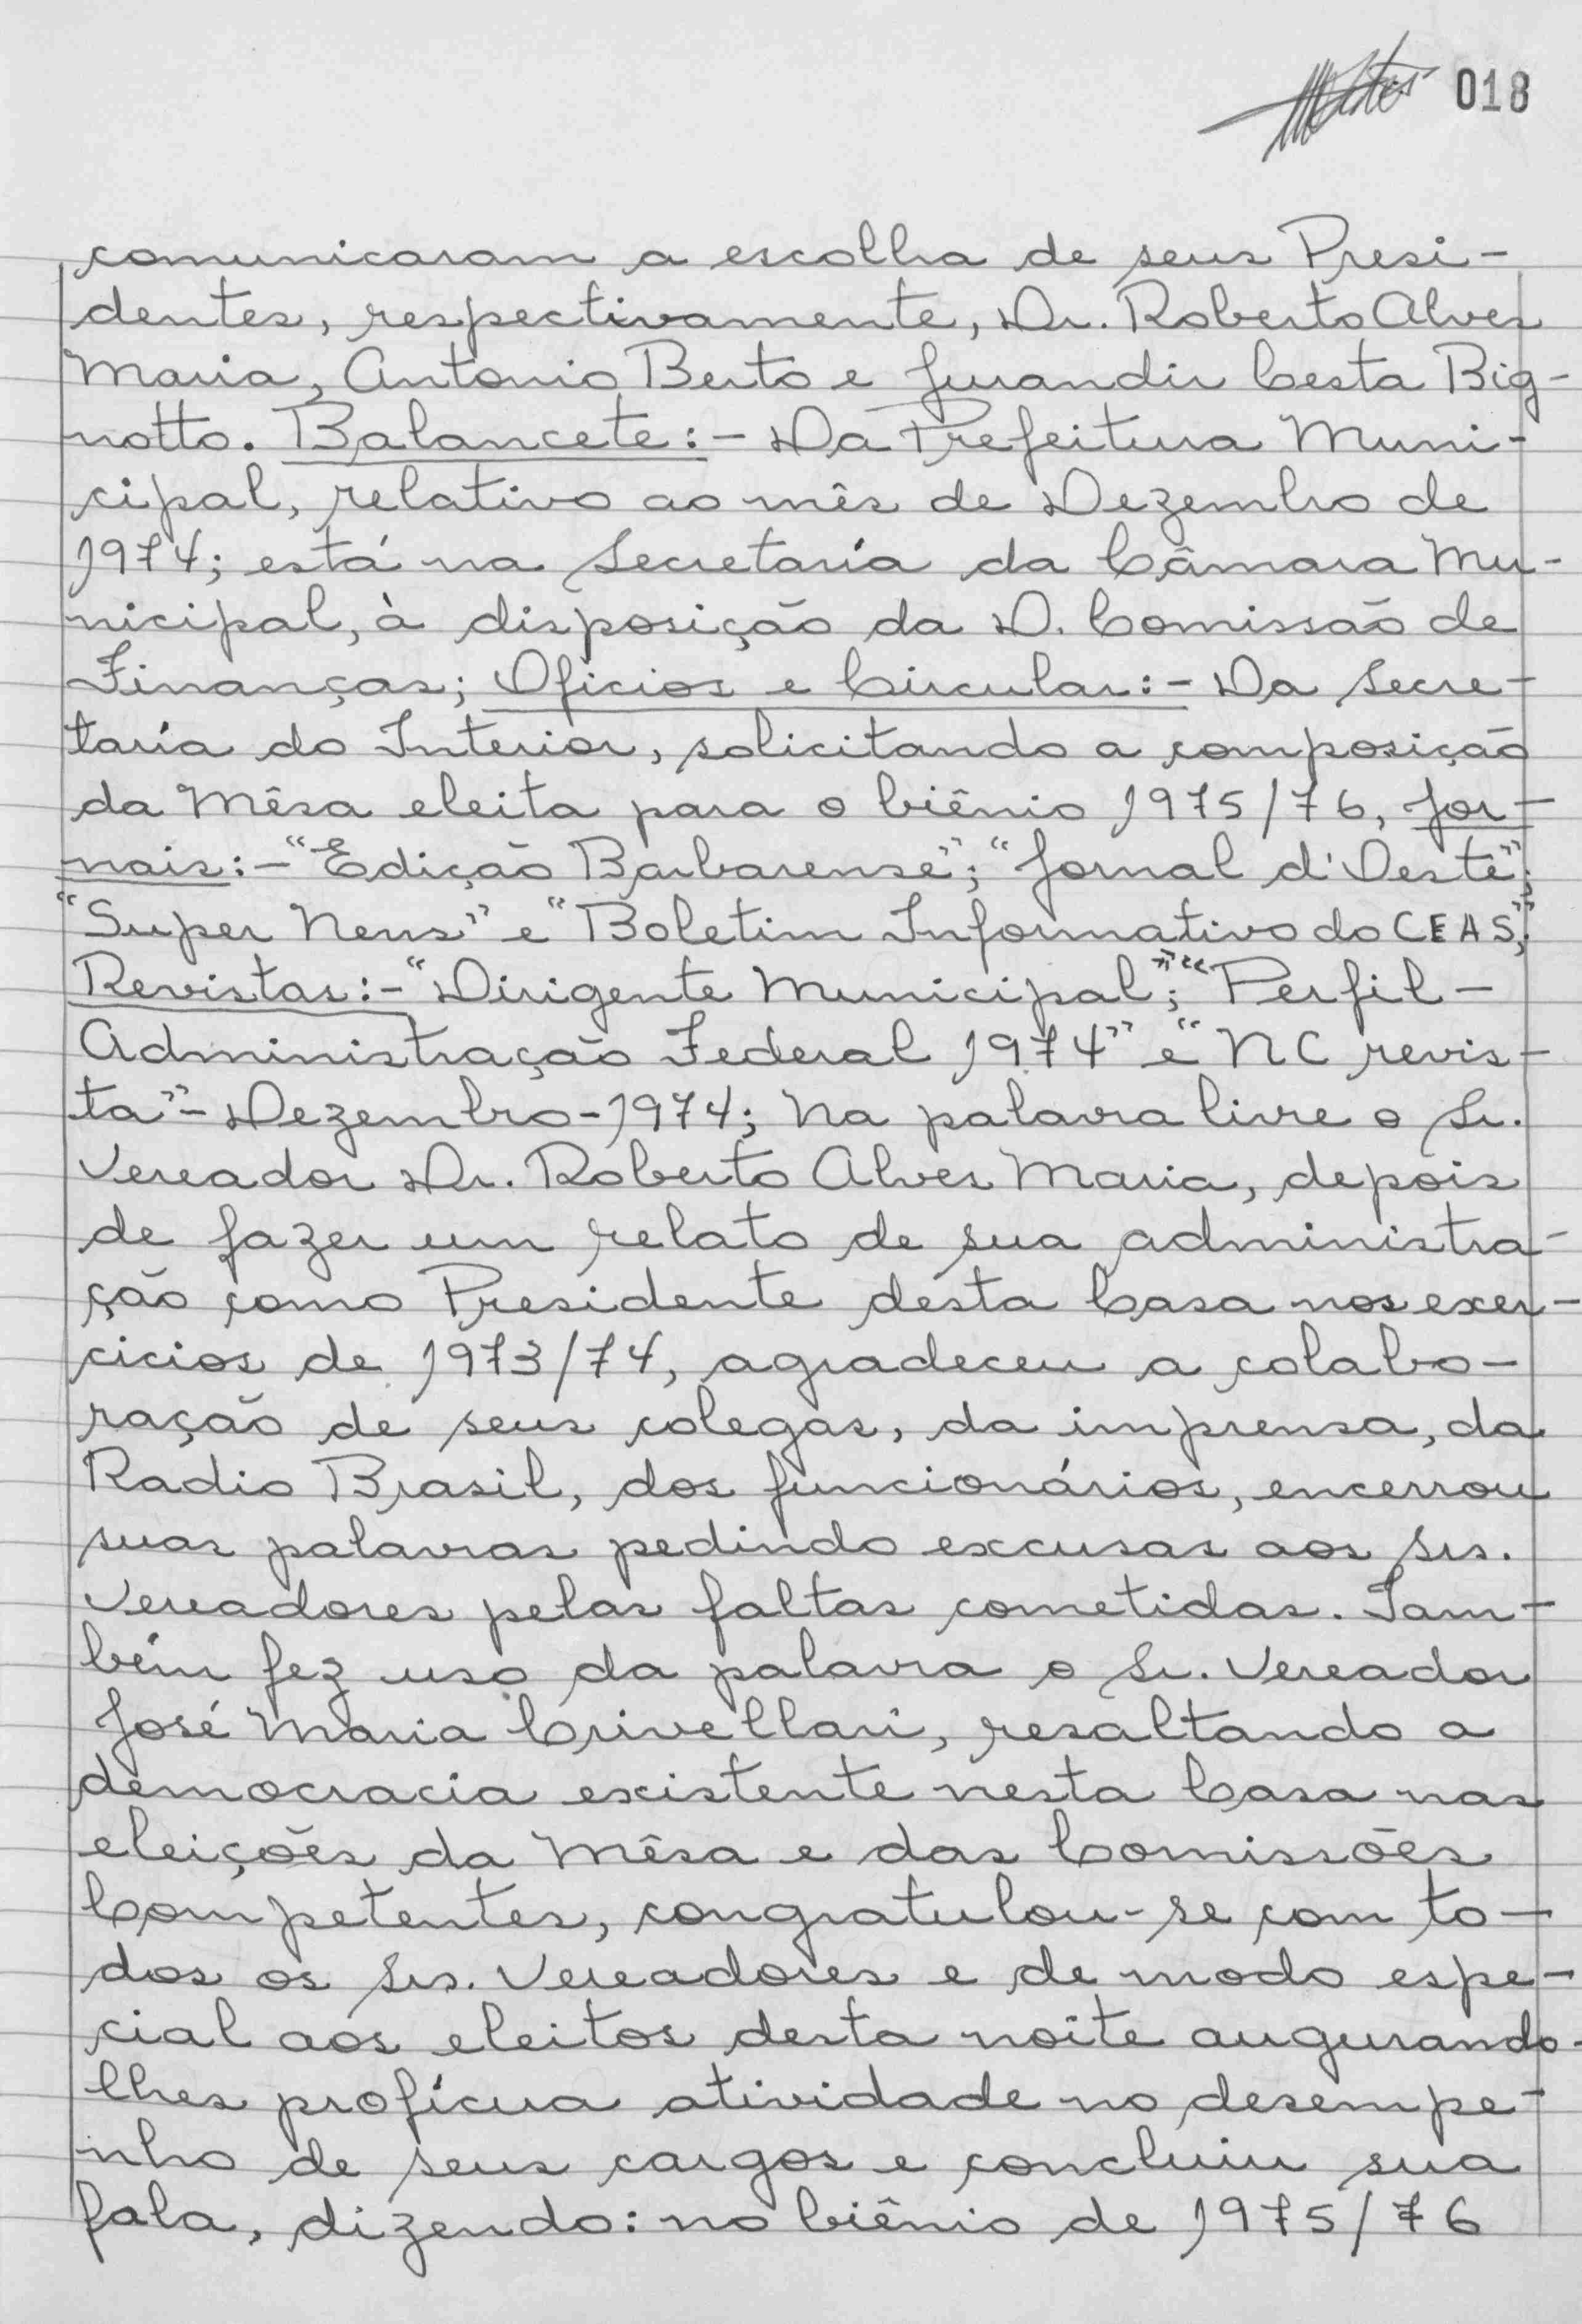 018
comunicaram a escolha de seus Presi-
dentes, respectivamente, Dr. Roberto Alves
Maria, Antonio Berto e Jurandir Cesta Big-
notto. Balancete:- Da Prefeitura Muni-
cipal, relativo ao mês de Dezembro de
1974; está na Secretaria da Câmara Mu-
nicipal, à disposição da D. Comissão de
Finanças; Oficios e Circular:- Da Secre-
taria do Interior, solicitando a composição
da Mêsa eleita para o biênio 1975/76, Jor-
nais:- "Edição Barbarense"; "Jornal d'Oeste";
"Super News" e "Boletim Informativo do CEAS";
Revistas:- "Dirigente Municipal"; "Perfil-
Administração Federal 1974" e "NC revis-
ta"- Dezembro-1974; Na palavra livre o Sr.
Vereador Dr. Roberto Alves Maria, depois
de fazer um relato de sua administra-
ção como Presidente desta Casa nos exer-
cicios de 1973/74, agradeceu a colabo-
ração de seus colegas, da imprensa, da
Radio Brasil, dos funcionários, encerrou
suas palavras pedindo excusas aos srs.
Vereadores pelas faltas cometidas. Tam-
bém fez uso da palavra o Sr. Vereador
José Maria Crivellari, resaltando a
democracia existente nesta Casa nas
eleições da Mêsa e das Comissões
Competentes, congratulou-se com to-
dos os Srs. Vereadores e de modo espe-
cial aos eleitos desta noite augurando-
lhes profícua atividade no desempe-
nho de seus cargos e concluiu sua
fala, dizendo: no biênio de 1975/76